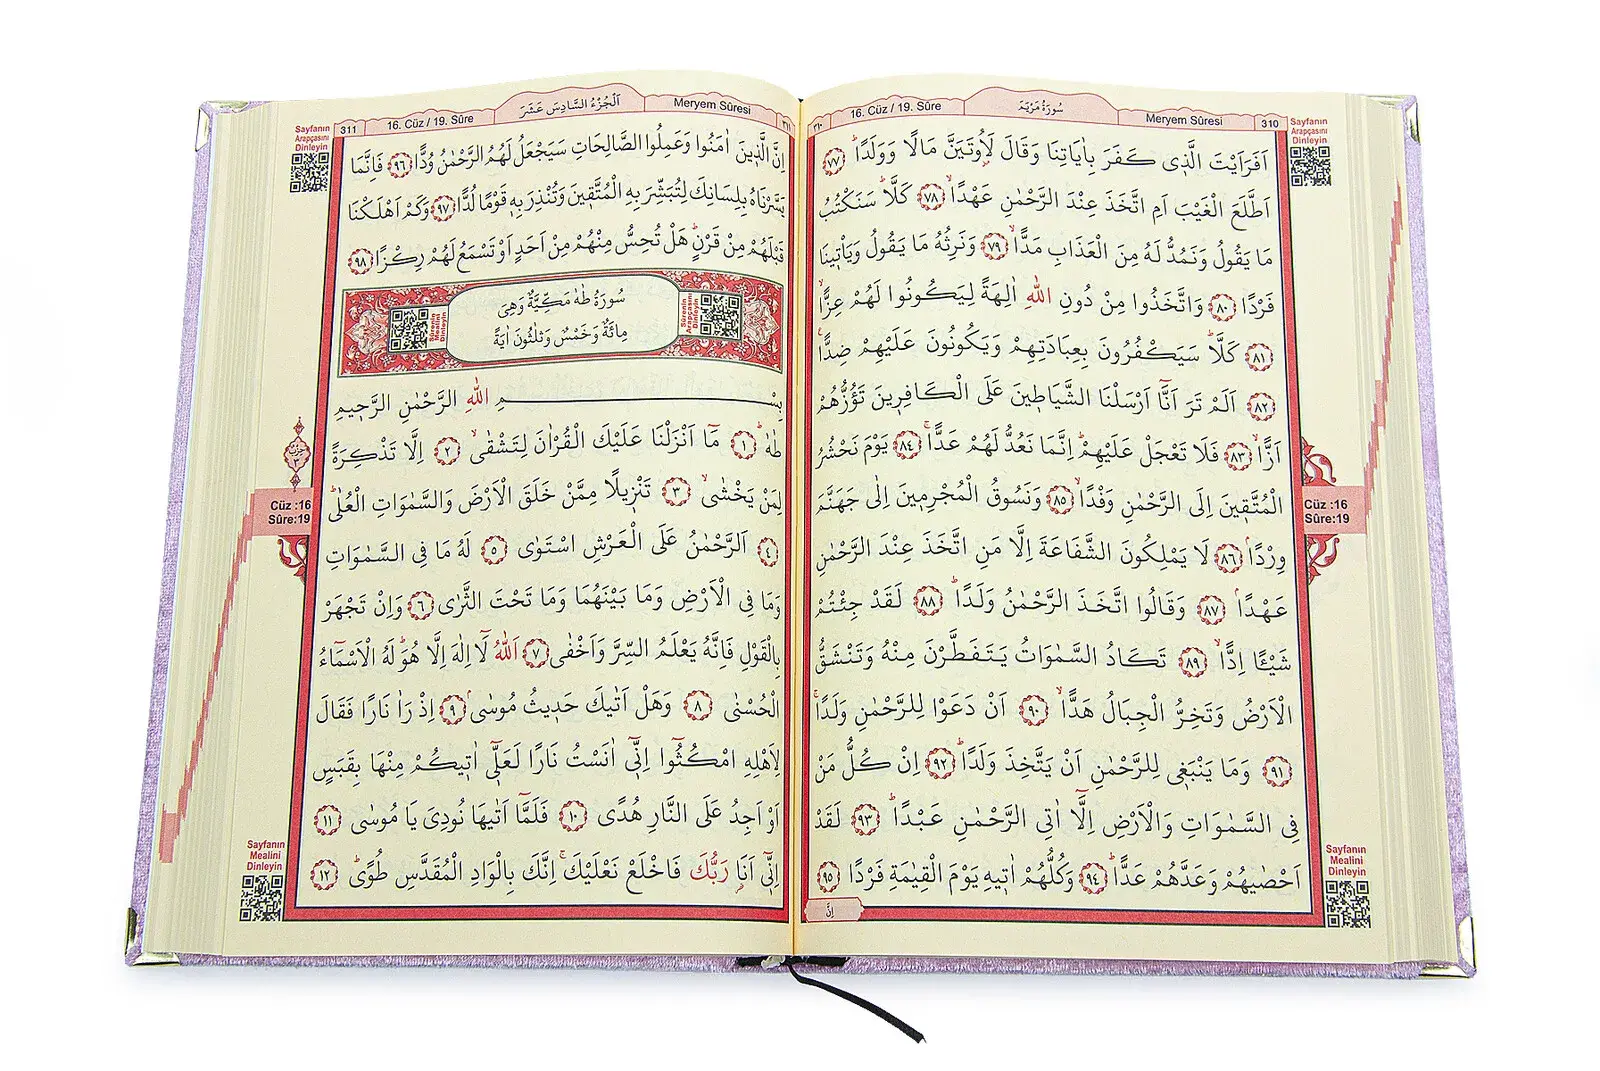 310
Meryem Sûresi
سُورَةُ مَرْيَمَ
16. Cüz / 19. Sûre
٣١٠
Sayfanın
Arapçasını
Dinleyin
اَفَرَاَيْتَ الَّذ۪ي كَفَرَ بِاٰيَاتِنَا وَقَالَ لَاُو۫تَيَنَّ مَالًا وَوَلَدًاۜ ﴿٧٧﴾
اَطَّلَعَ الْغَيْبَ اَمِ اتَّخَذَ عِنْدَ الرَّحْمٰنِ عَهْدًاۙ ﴿٧٨﴾ كَلَّاۜ سَنَكْتُبُ
مَا يَقُولُ وَنَمُدُّ لَهُ مِنَ الْعَذَابِ مَدًّاۙ ﴿٧٩﴾ وَنَرِثُهُ مَا يَقُولُ وَيَأْت۪ينَا
فَرْدًا ﴿٨٠﴾ وَاتَّخَذُوا مِنْ دُونِ اللّٰهِ اٰلِهَةً لِيَكُونُوا لَهُمْ عِزًّاۙ
﴿٨١﴾ كَلَّاۜ سَيَكْفُرُونَ بِعِبَادَتِهِمْ وَيَكُونُونَ عَلَيْهِمْ ضِدًّا۟
﴿٨٢﴾ اَلَمْ تَرَ اَنَّٓا اَرْسَلْنَا الشَّيَاط۪ينَ عَلَى الْكَافِر۪ينَ تَؤُزُّهُمْ
اَزًّاۙ ﴿٨٣﴾ فَلَا تَعْجَلْ عَلَيْهِمْۜ اِنَّمَا نَعُدُّ لَهُمْ عَدًّاۚ ﴿٨٤﴾ يَوْمَ نَحْشُرُ
الْمُتَّق۪ينَ اِلَى الرَّحْمٰنِ وَفْدًاۙ ﴿٨٥﴾ وَنَسُوقُ الْمُجْرِم۪ينَ اِلٰى جَهَنَّمَ
وِرْدًاۢ ﴿٨٦﴾ لَا يَمْلِكُونَ الشَّفَاعَةَ اِلَّا مَنِ اتَّخَذَ عِنْدَ الرَّحْمٰنِ
عَهْدًاۢ ﴿٨٧﴾ وَقَالُوا اتَّخَذَ الرَّحْمٰنُ وَلَدًاۜ ﴿٨٨﴾ لَقَدْ جِئْتُمْ
شَيْـًٔا اِدًّاۙ ﴿٨٩﴾ تَكَادُ السَّمٰوَاتُ يَتَفَطَّرْنَ مِنْهُ وَتَنْشَقُّ
الْاَرْضُ وَتَخِرُّ الْجِبَالُ هَدًّاۙ ﴿٩٠﴾ اَنْ دَعَوْا لِلرَّحْمٰنِ وَلَدًاۚ
﴿٩١﴾ وَمَا يَنْبَغ۪ي لِلرَّحْمٰنِ اَنْ يَتَّخِذَ وَلَدًاۜ ﴿٩٢﴾ اِنْ كُلُّ مَنْ
فِي السَّمٰوَاتِ وَالْاَرْضِ اِلَّٓا اٰتِي الرَّحْمٰنِ عَبْدًاۜ ﴿٩٣﴾ لَقَدْ
اَحْصٰيهُمْ وَعَدَّهُمْ عَدًّاۜ ﴿٩٤﴾ وَكُلُّهُمْ اٰت۪يهِ يَوْمَ الْقِيٰمَةِ فَرْدًا ﴿٩٥﴾
اِنَّ
Cüz :16
Sûre:19
Sayfanın
Mealini
Dinleyin
٣١١
Meryem Sûresi
اَلْجُزْءُ السَّادِسَ عَشَرَ
16. Cüz / 19. Sûre
311
Sayfanın
Arapçasını
Dinleyin
اِنَّ الَّذ۪ينَ اٰمَنُوا وَعَمِلُوا الصَّالِحَاتِ سَيَجْعَلُ لَهُمُ الرَّحْمٰنُ وُدًّا ﴿٩٦﴾ فَاِنَّمَا
يَسَّرْنَاهُ بِلِسَانِكَ لِتُبَشِّرَ بِهِ الْمُتَّق۪ينَ وَتُنْذِرَ بِه۪ قَوْمًا لُدًّا ﴿٩٧﴾ وَكَمْ اَهْلَكْنَا
قَبْلَهُمْ مِنْ قَرْنٍۜ هَلْ تُحِسُّ مِنْهُمْ مِنْ اَحَدٍ اَوْ تَسْمَعُ لَهُمْ رِكْزًا ﴿٩٨﴾
Sûrenin
Arapçasını
Dinleyin
سُورَةُ طٰهٰ مَكِّيَّةٌ وَهِيَ
مِائَةٌ وَخَمْسٌ وَثَلٰثُونَ اٰيَةً
Sûrenin
Mealini
Dinleyin
بِسْمِ اللّٰهِ الرَّحْمٰنِ الرَّح۪يمِ
طٰهٰۜ ﴿١﴾ مَٓا اَنْزَلْنَا عَلَيْكَ الْقُرْاٰنَ لِتَشْقٰىۙ ﴿٢﴾ اِلَّا تَذْكِرَةً
لِمَنْ يَخْشٰىۙ ﴿٣﴾ تَنْز۪يلًا مِمَّنْ خَلَقَ الْاَرْضَ وَالسَّمٰوَاتِ الْعُلٰىۜ
﴿٤﴾ اَلرَّحْمٰنُ عَلَى الْعَرْشِ اسْتَوٰى ﴿٥﴾ لَهُ مَا فِي السَّمٰوَاتِ
وَمَا فِي الْاَرْضِ وَمَا بَيْنَهُمَا وَمَا تَحْتَ الثَّرٰى ﴿٦﴾ وَاِنْ تَجْهَرْ
بِالْقَوْلِ فَاِنَّهُ يَعْلَمُ السِّرَّ وَاَخْفٰى ﴿٧﴾ اَللّٰهُ لَٓا اِلٰهَ اِلَّا هُوَۜ لَهُ الْاَسْمَٓاءُ
الْحُسْنٰى ﴿٨﴾ وَهَلْ اَتٰيكَ حَد۪يثُ مُوسٰىۢ ﴿٩﴾ اِذْ رَاٰ نَارًا فَقَالَ
لِاَهْلِهِ امْكُثُٓوا اِنّ۪ٓي اٰنَسْتُ نَارًا لَعَلّ۪ٓي اٰت۪يكُمْ مِنْهَا بِقَبَسٍ
اَوْ اَجِدُ عَلَى النَّارِ هُدًى ﴿١٠﴾ فَلَمَّٓا اَتٰيهَا نُودِيَ يَا مُوسٰى ﴿١١﴾
اِنّ۪ٓي اَنَا۬ رَبُّكَ فَاخْلَعْ نَعْلَيْكَۚ اِنَّكَ بِالْوَادِ الْمُقَدَّسِ طُوًىۜ ﴿١٢﴾
حزب
٣
Cüz :16
Sûre:19
Sayfanın
Mealini
Dinleyin